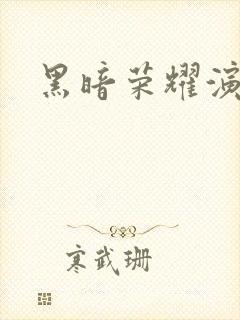 黑暗荣耀演
寒武珊